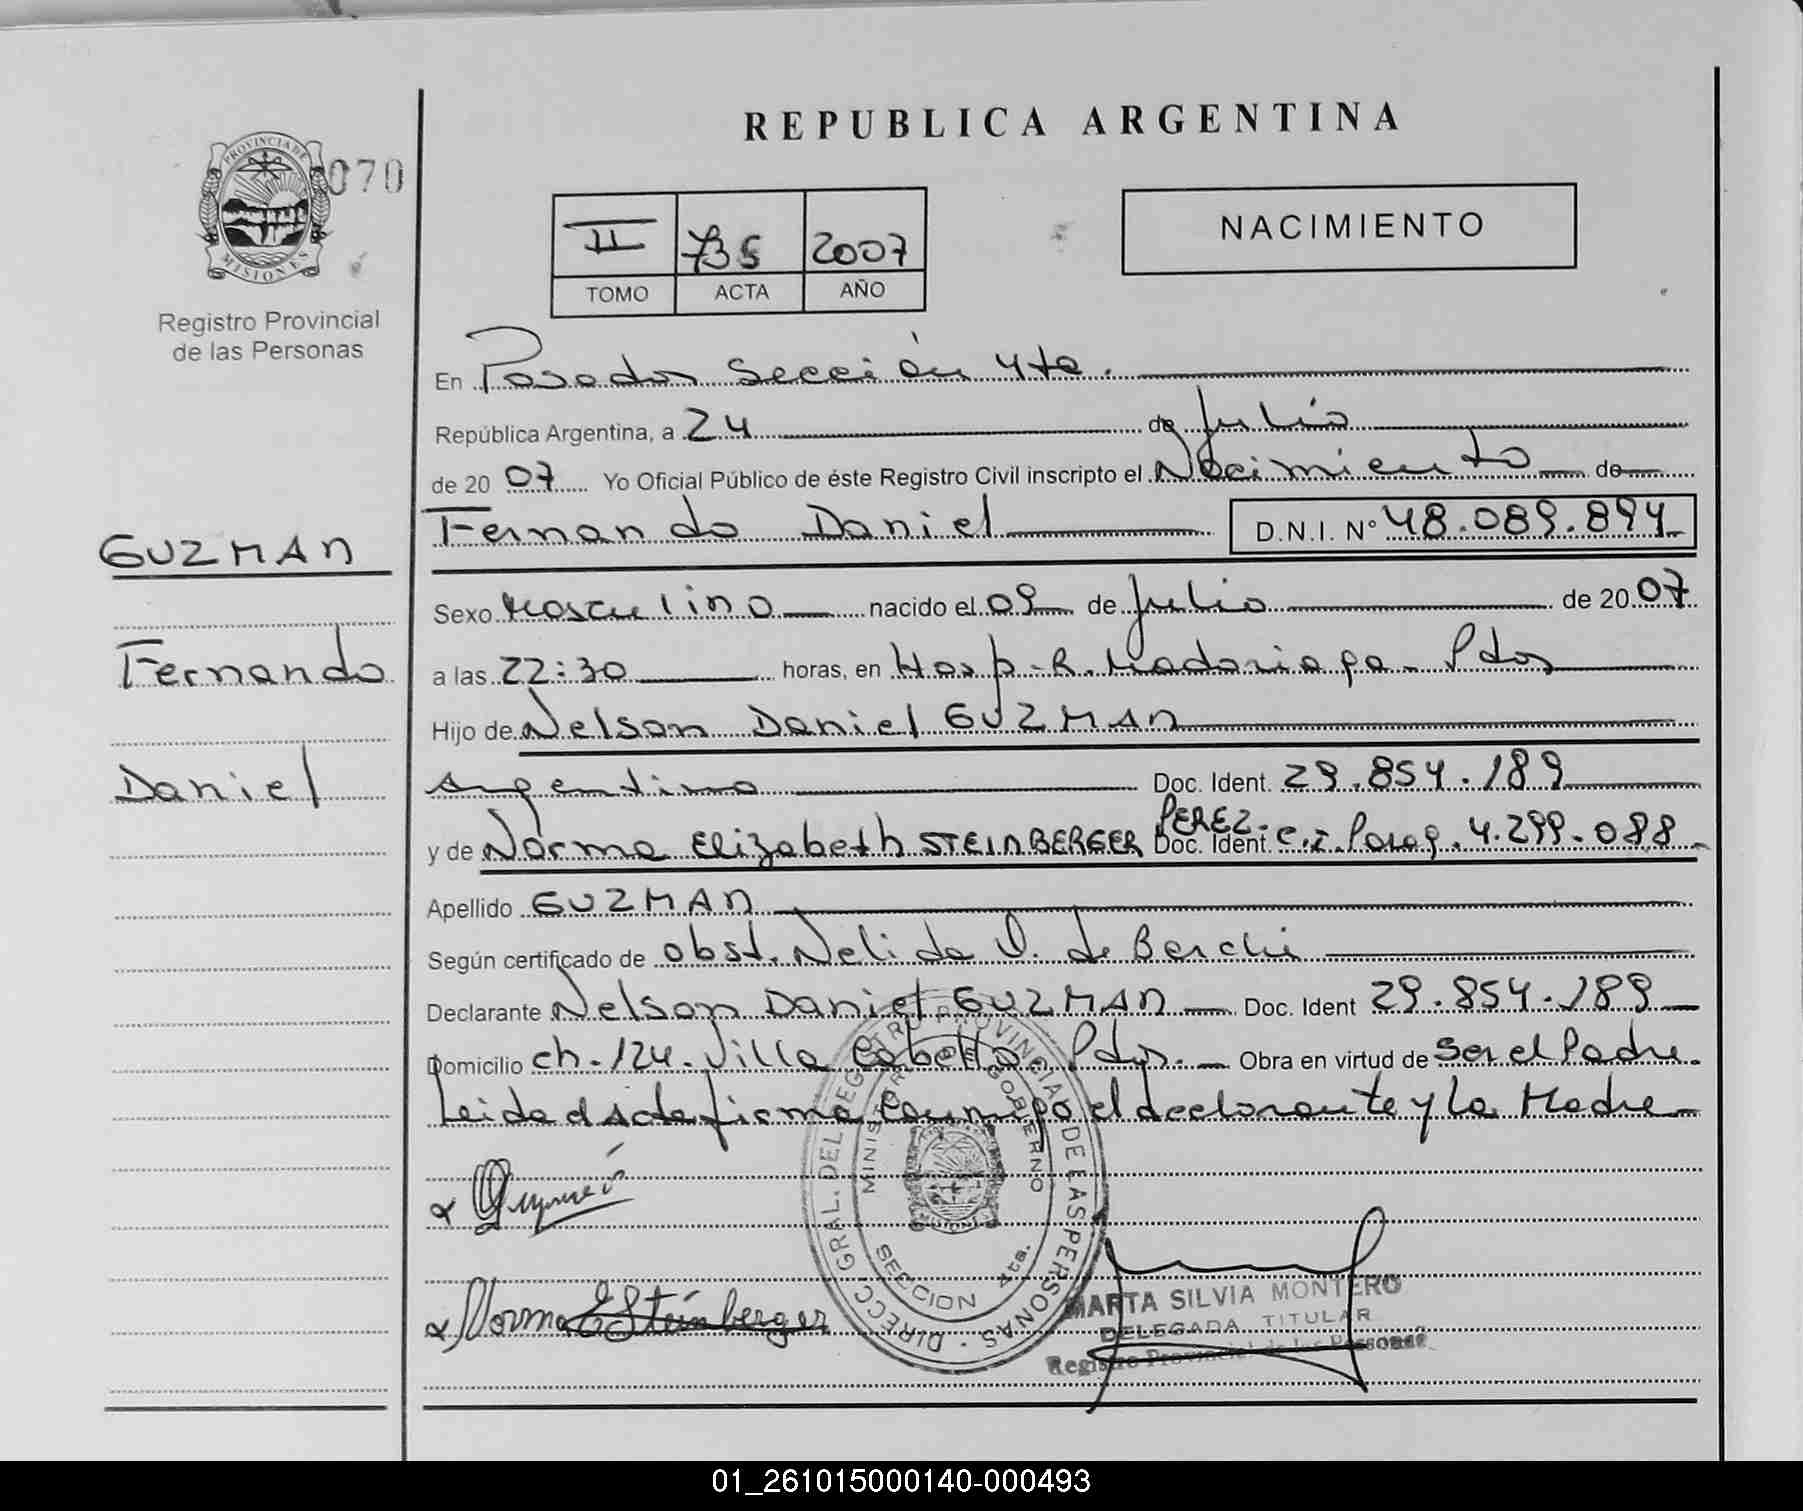 REPUBLICA ARGENTINA
PROVINCIA DE MISIONES
070
Registro Provincial
de las Personas
II 735 2007
TOMO ACTA AÑO
NACIMIENTO
En Posadas Sección 4ta.
República Argentina, a 24 de Julio
de 2007 Yo Oficial Público de éste Registro Civil inscripto el Nacimiento de
Fernando Daniel D.N.I. Nº 48.089.894
GUZMAN
Fernando
Daniel
Sexo Masculino nacido el 09 de Julio de 2007
a las 22:30 horas, en Hosp. R. Madariaga - Pdas
Hijo de Nelson Daniel GUZMAN
Argentino Doc. Ident. 29.854.189
y de Norma Elizabeth STEINBERGER PEREZ. Doc. Ident. C.I. Parag. 4.299.088
Apellido GUZMAN
Según certificado de obst. Nelida de Berchi
Declarante Nelson Daniel GUZMAN Doc. Ident 29.854.189
Domicilio ch. 124. Villa Cabello Pdas. Obra en virtud de Ser el Padre.
Leida el Acta firma Conmigo el declarante y la Madre
DIRECC. GRAL. DEL REGISTRO PROVINCIAL DE LAS PERSONAS
MINISTERIO DE GOBIERNO
SECCION 4ta.
Norma E Steinberger
MARTA SILVIA MONTERO
DELEGADA TITULAR
Registro Provincial de las Personas
01_261015000140-000493